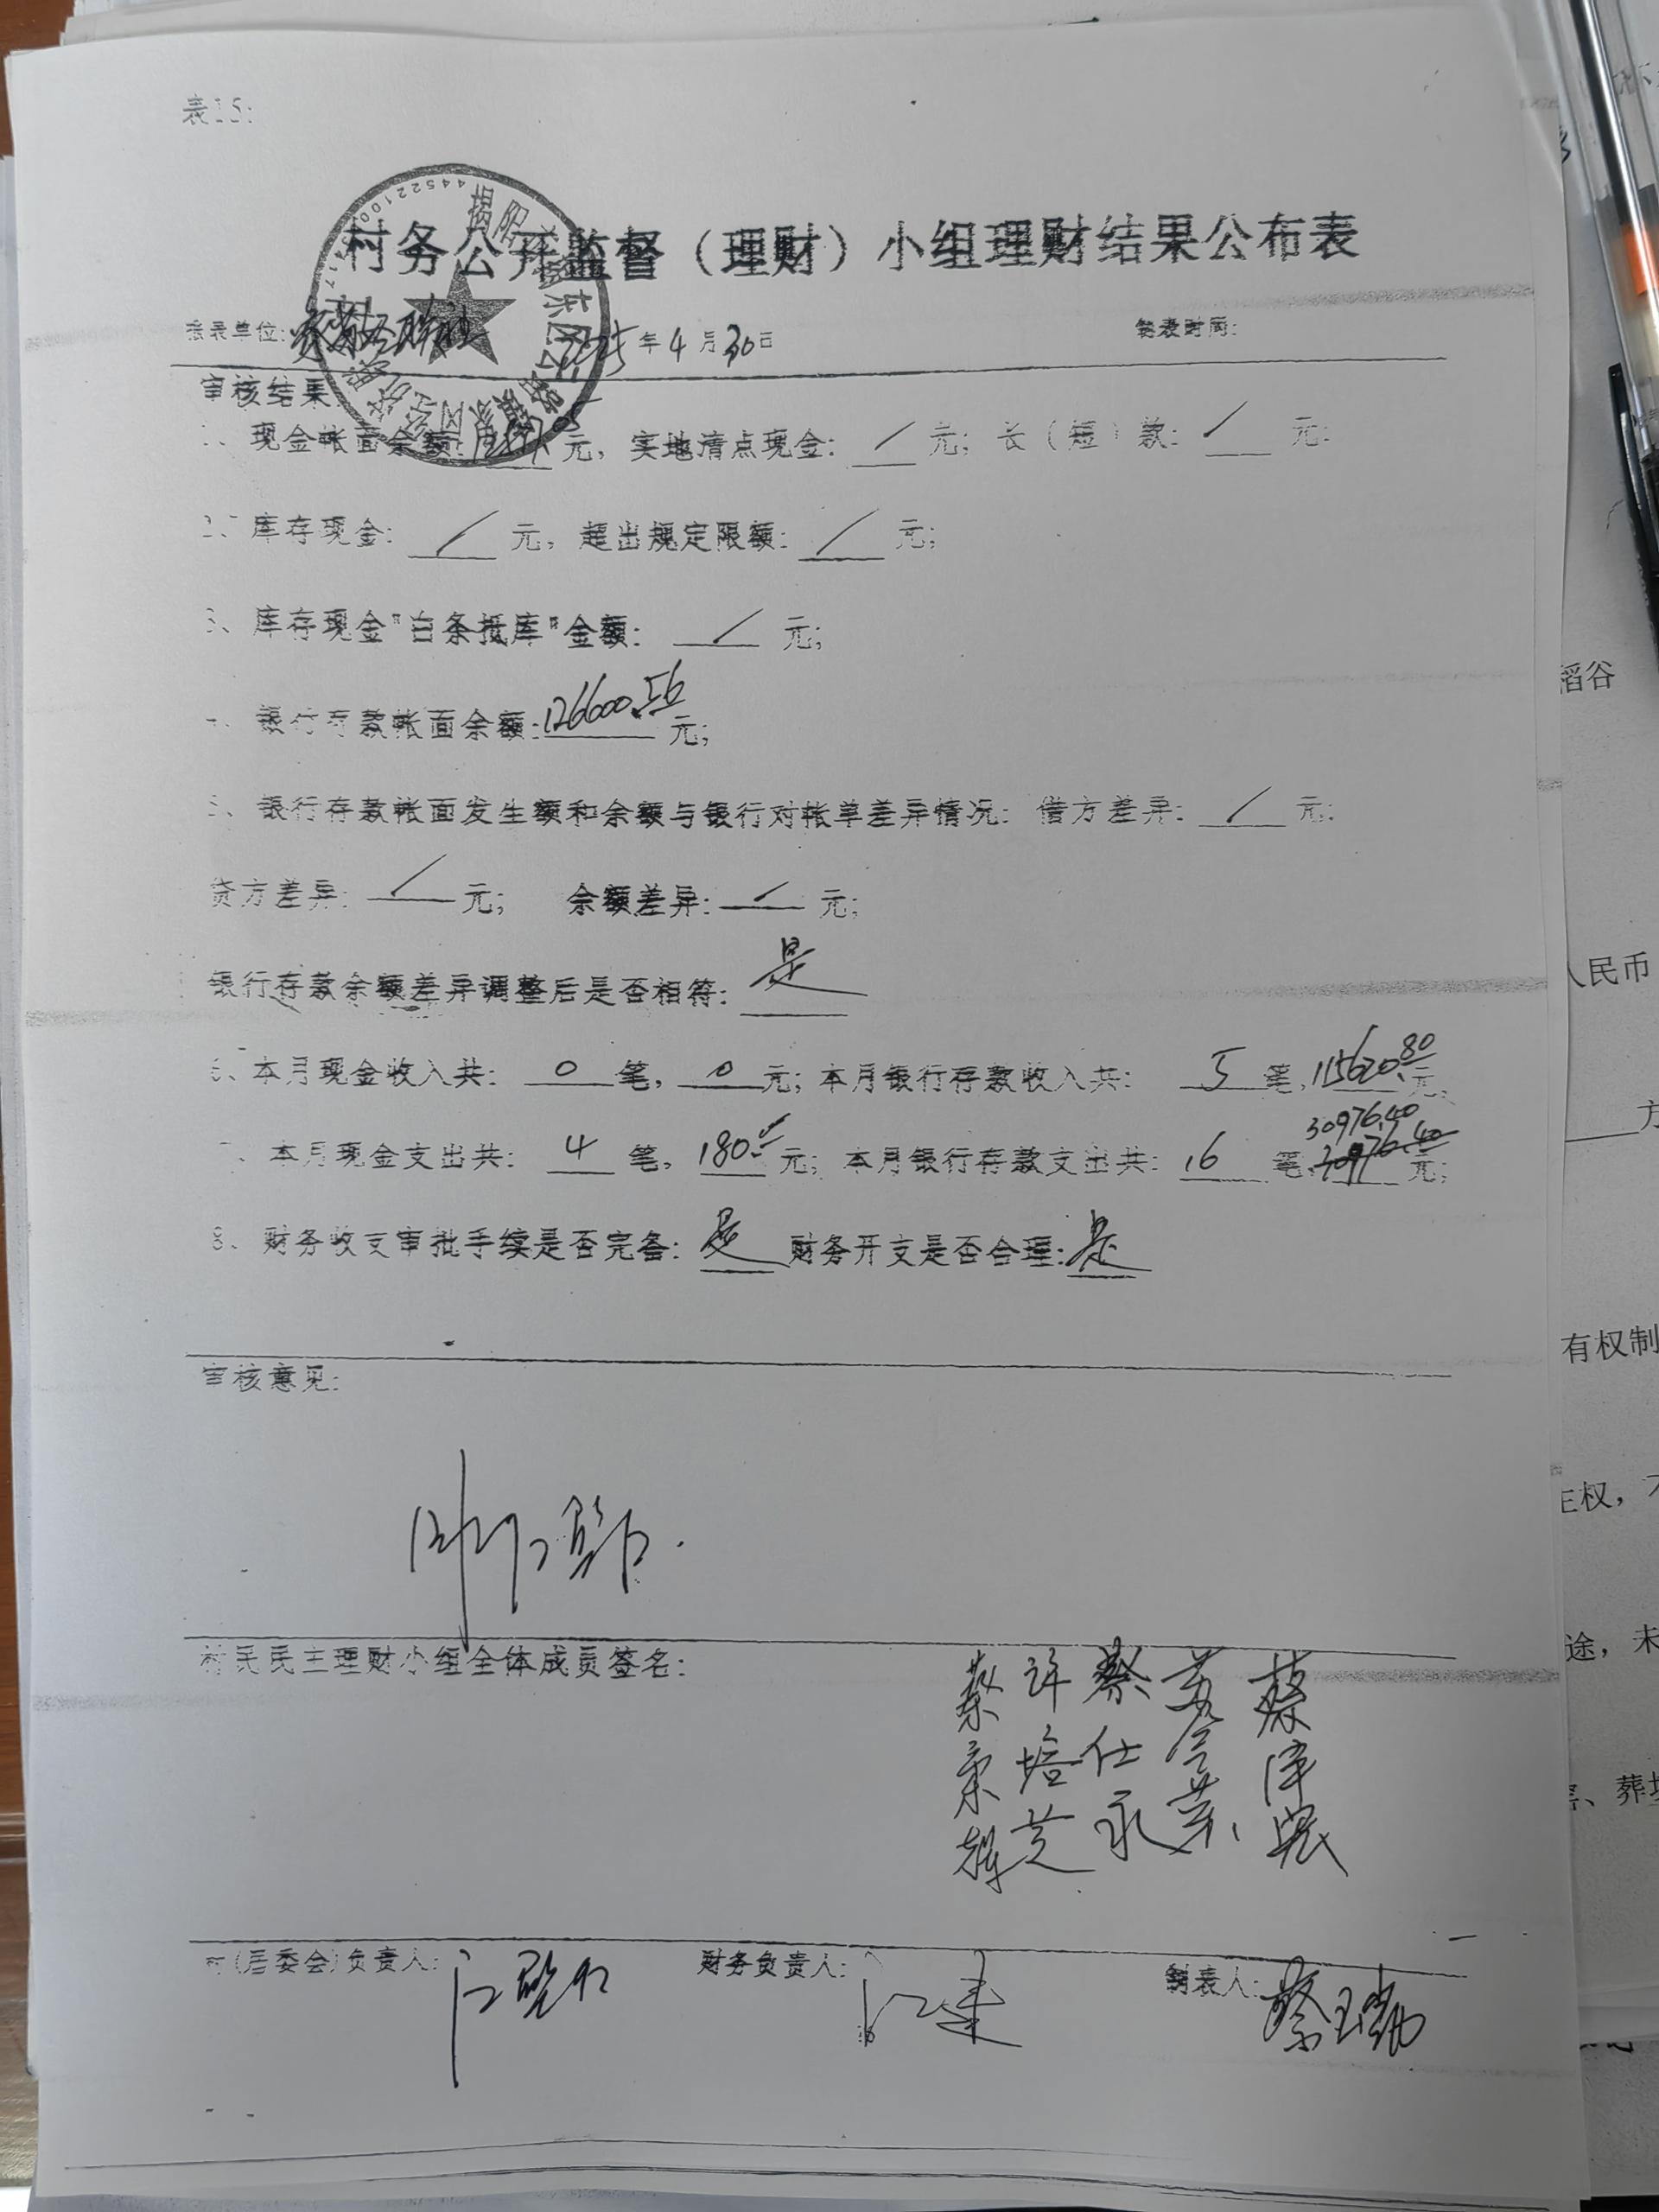 表15:
村务公开监督（理财）小组理财结果公布表
年4月30日 制表时间:
审核结果
现金帐面余额: 元, 实地清点现金: / 元; 长（短）款: / 元:
库存现金: / 元, 超出规定限额: / 元;
库存现金"白条抵库"金额: / 元;
银行存款帐面余额: 126600.56 元;
银行存款帐面发生额和余额与银行对帐单差异情况: 借方差异: / 元:
贷方差异: / 元; 余额差异: / 元;
银行存款余额差异调整后是否相符: 是
、本月现金收入共: 0 笔, 0 元; 本月银行存款收入共: 5 笔, 115620.80 元
30976.40
、本月现金支出共: 4 笔, 180 元; 本月银行存款支出共: 16 笔, 30976.40 元;
8、财务收支审批手续是否完备: 是 财务开支是否合理: 是
审核意见:
村民民主理财小组全体成员签名:
许培芝
蔡仕永
村(居委会)负责人:
财务负责人:
制表人:
稻谷
人民币
方
有权制
主权，不
途，未
、葬